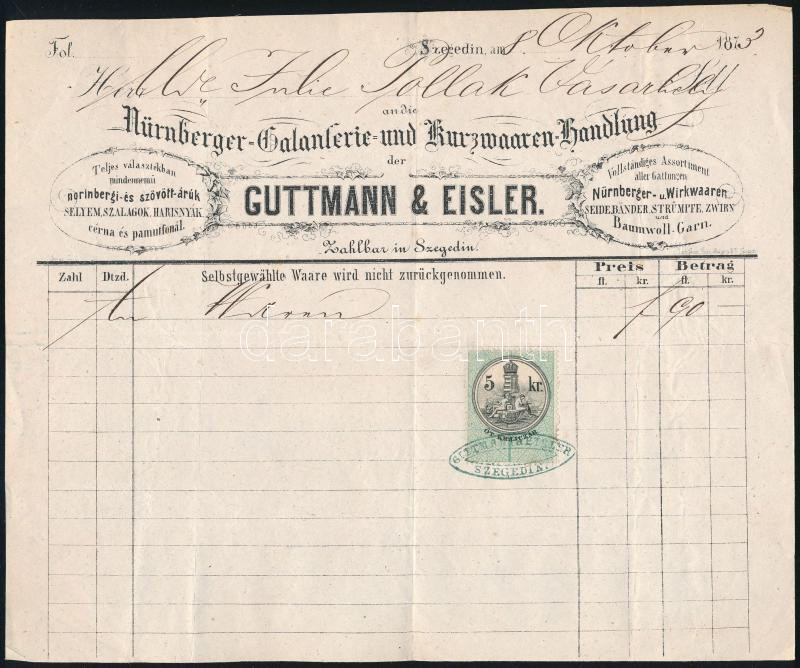 Fol.
Szegedin, am 8. Oktober 1873
Herrn Julie Pollak Vásarhely
an die
Nürnberger-Galanterie-und Kurzwaaren-Handlung
der
GUTTMANN & EISLER.
Zahlbar in Szegedin.
Teljes választékban
mindennemű
norinbergi-és szövött-árúk
SELYEM, SZALAGOK, HARISNYÁK,
cérna és pamutfonál.
Vollständiges Assortiment
aller Gattungen
Nürnberger- u. Wirkwaaren
SEIDE, BÄNDER, STRÜMPFE, ZWIRN
und
Baumwoll-Garn.
Zahl Dtzd. Selbstgewählte Waare wird nicht zurückgenommen. Preis Betrag
fl. kr. fl. kr.
An Waren f 90 —
5 kr.
ÖT KRAJCZÁR
GUTTMANN & EISLER
SZEGEDIN.
darabanth